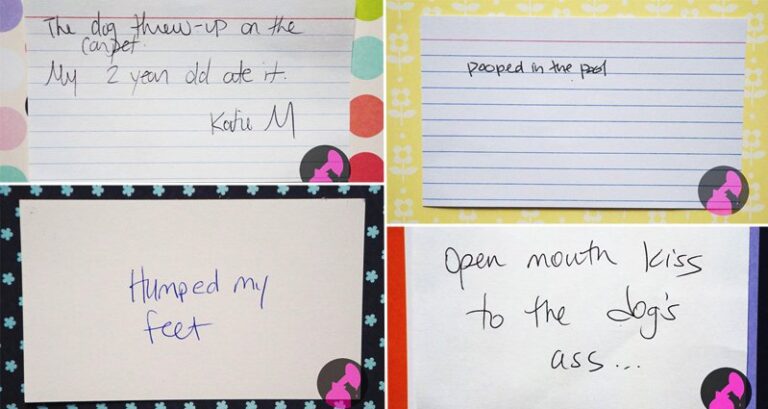 The dog threw-up on the
carpet.
My 2 year old ate it.
Katie M
pooped in the pool
Humped my
feet
Open mouth kiss
to the dog's
ass...